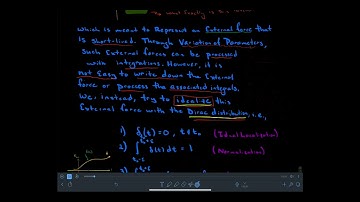 which is meant to Represent an External force that
is short-lived. Through Variation of Parameters,
such External forces can be processed
with integrations. However, it is
not Easy to write down the External
force or process the associated integrals.
We, instead, try to idealize this
External force with the Dirac distribution, i.e.,
1) δ(t) = 0, t ≠ t₀ (Ideal Localization)
2) ∫ δ(t) dt = 1 (Normalization)
3)